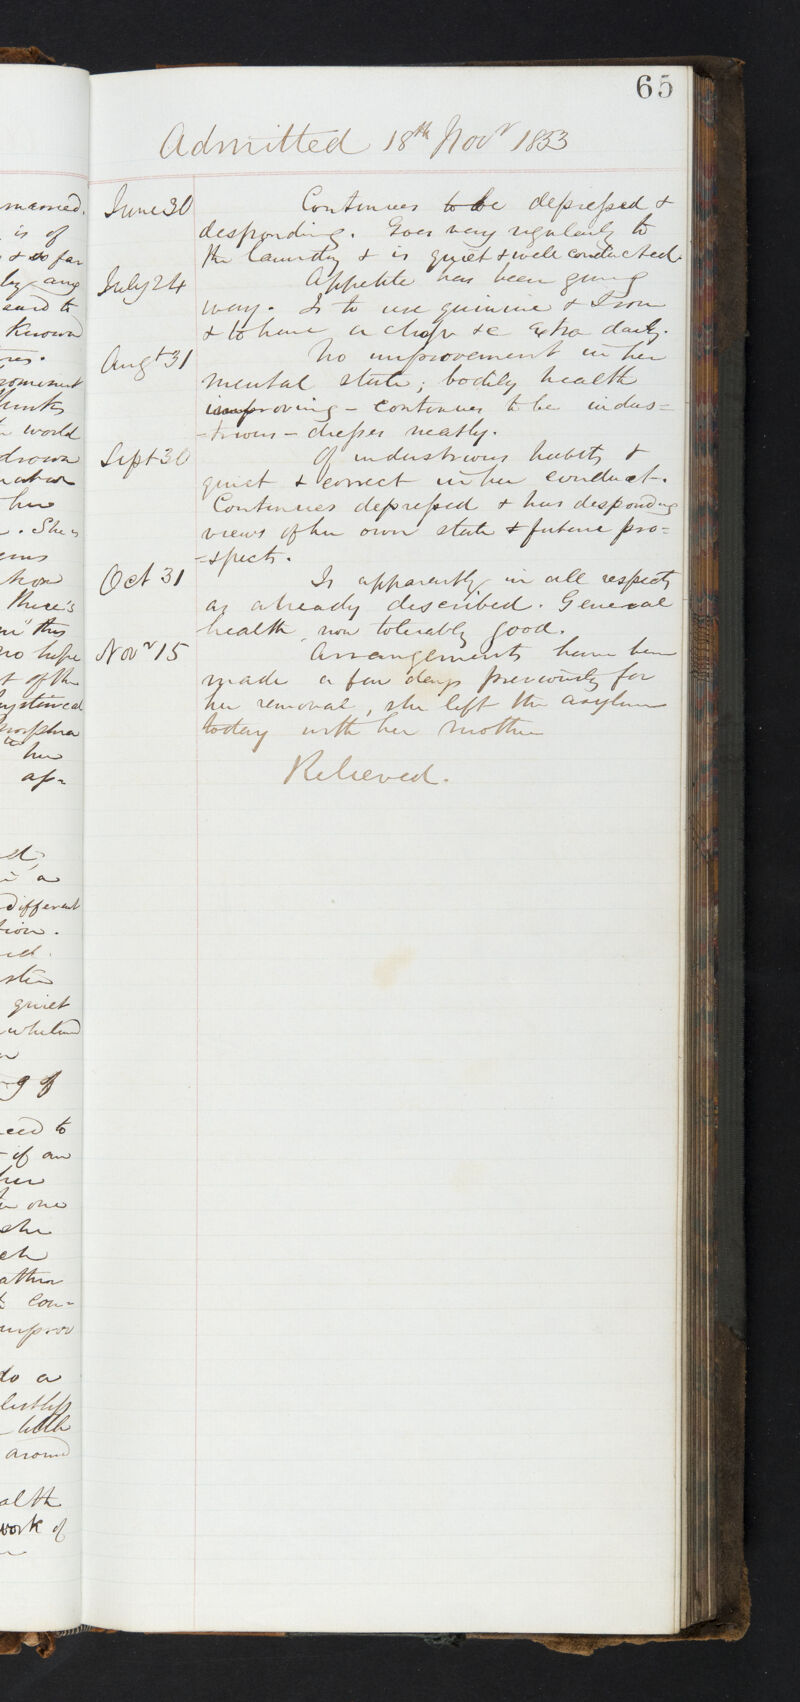 65
Admitted 18th Novr 1853
June 30 Continues to be depressed &
desponding. Goes very regularly to
the laundry & is quiet & well conducted.
July 24 Appetite has been giving
way. Is to use quinine & Iron
& to have a chop &c extra daily.
Augt 31 No improvement in her
mental state; bodily health
improving - continues to be indus=
-trious - dresses neatly.
Sept 30 Of industrious habits &
quiet & correct in her conduct.
Continues depressed & has desponding
views of her own state & future pro=
-spects.
Oct 31 Is apparently in all respects
as already described. General
health now tolerably good.
Novr 15 Arrangements have been
made a few days previously for
her removal, she left the asylum
today with her mother
Relieved.
married.
is of
& so far
by any
said to
known
prominent
thinks
world
drawn
her
. She is
how
there's
this
no hope
t of the
hysterical
morphia
her
ap-
a
different
tion.
quiet
g of
ceed to
if an
her
one
she
con-
improv
do a
listless
with
around
alth
work of